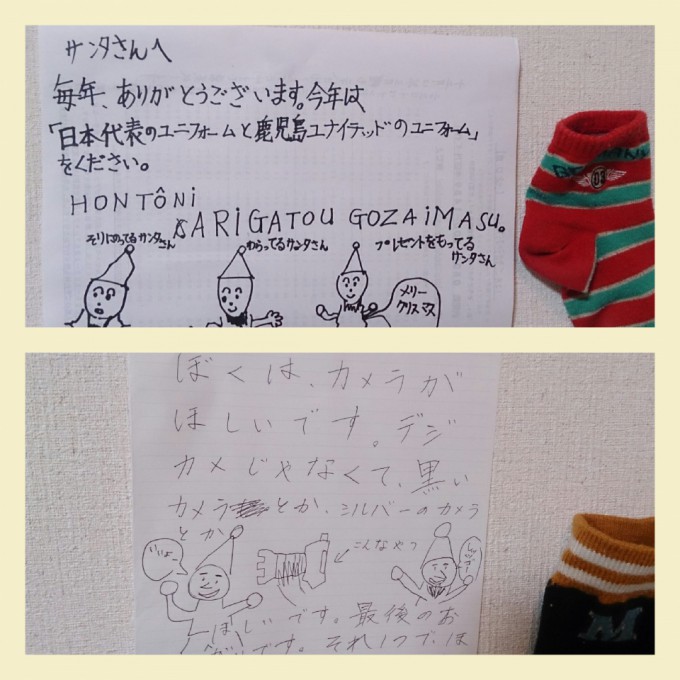 サンタさんへ
毎年、ありがとうございます。今年は
「日本代表のユニフォームと鹿児島ユナイテッドのユニフォーム」
をください。
HONTÔNi
ARiGATOU GOZAiMASU。
そりにのってるサンタさん
わらってるサンタさん
プレゼントをもってる
サンタさん
メリー
クリスマス
ぼくは、カメラが
ほしいです。デジ
カメじゃなくて、黒い
カメラとか、シルバーのカメラ
とか
いいよー
こんなやつ
ほしいです。最後のお
です。それ1つで、ほ
M